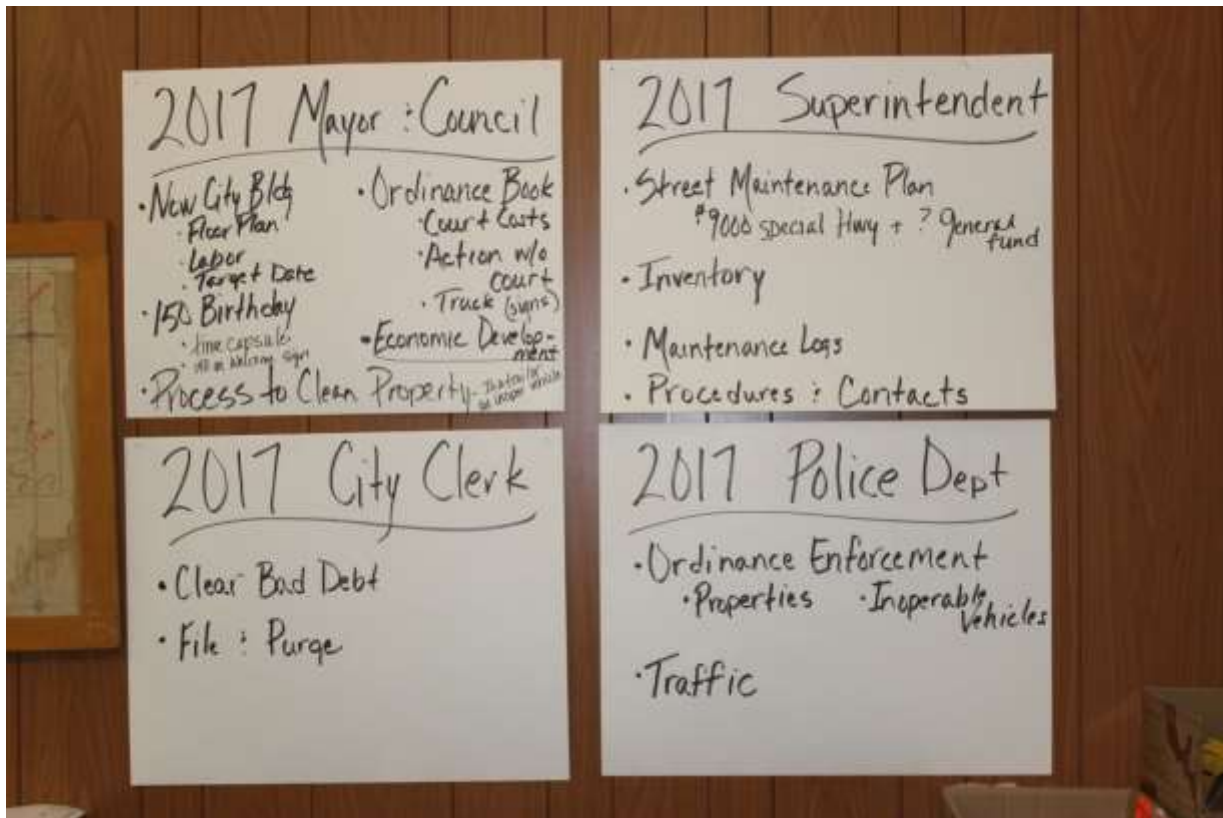 2017 Mayor : Council
• New City Bldg
• Floor Plan
• Labor
• Target Date
• 150 Birthday
• time capsule
• Ordinance Book
• Court Costs
• Action w/o
court
• Truck (signs)
• Economic Develop-
ment
• Process to Clean Property -
2017 Superintendent
• Street Maintenance Plan
$9000 special Hwy + ? general
fund
• Inventory
• Maintenance Logs
• Procedures : Contacts
2017 City Clerk
• Clear Bad Debt
• File : Purge
2017 Police Dept
• Ordinance Enforcement
• Properties • Inoperable
Vehicles
• Traffic